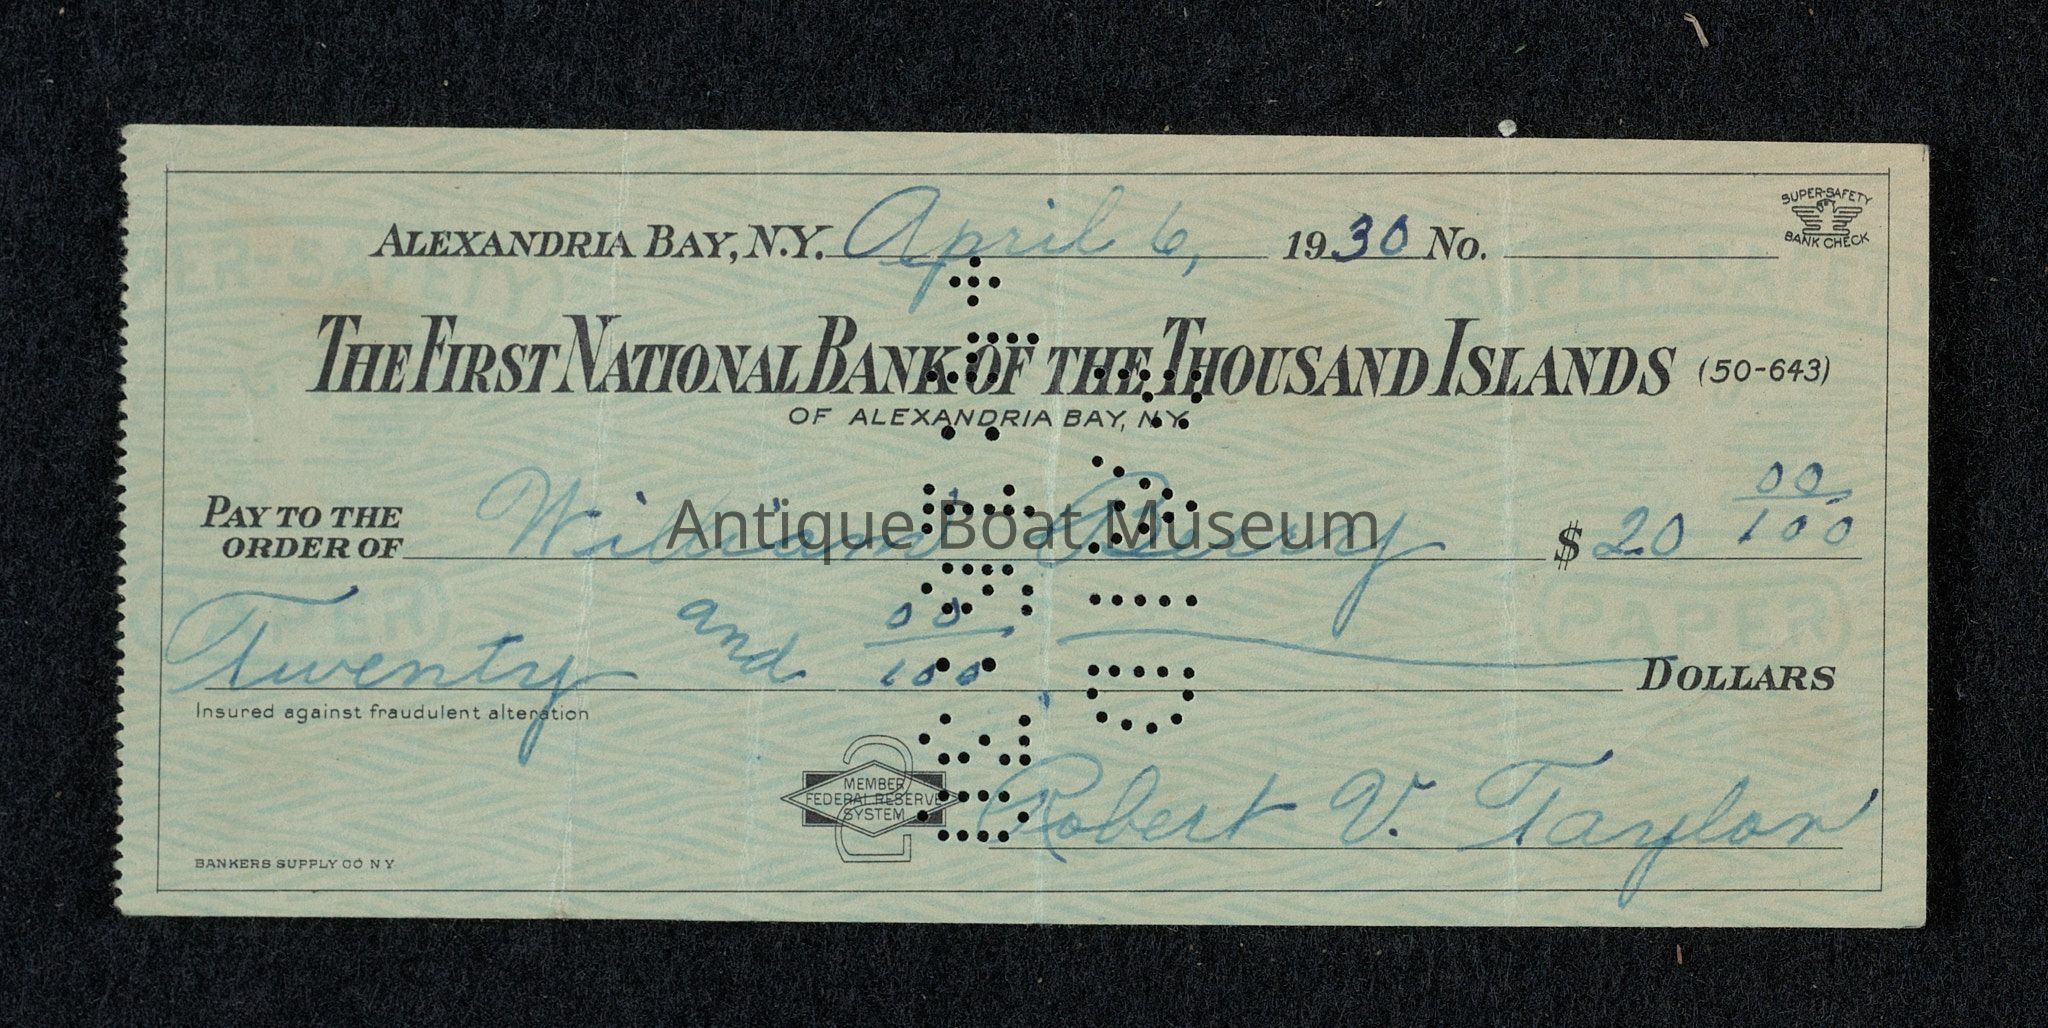 SUPER-SAFETY
BANK CHECK
ALEXANDRIA BAY, N.Y. April 6, 1930 No.
THE FIRST NATIONAL BANK OF THE THOUSAND ISLANDS (50-643)
OF ALEXANDRIA BAY, N.Y.
PAY TO THE
ORDER OF William Perry $ 20 00/100
Antique Boat Museum
Twenty and 00/100 DOLLARS
Insured against fraudulent alteration
MEMBER
FEDERAL RESERVE
SYSTEM
Robert V. Taylor
BANKERS SUPPLY CO N Y
PAPER